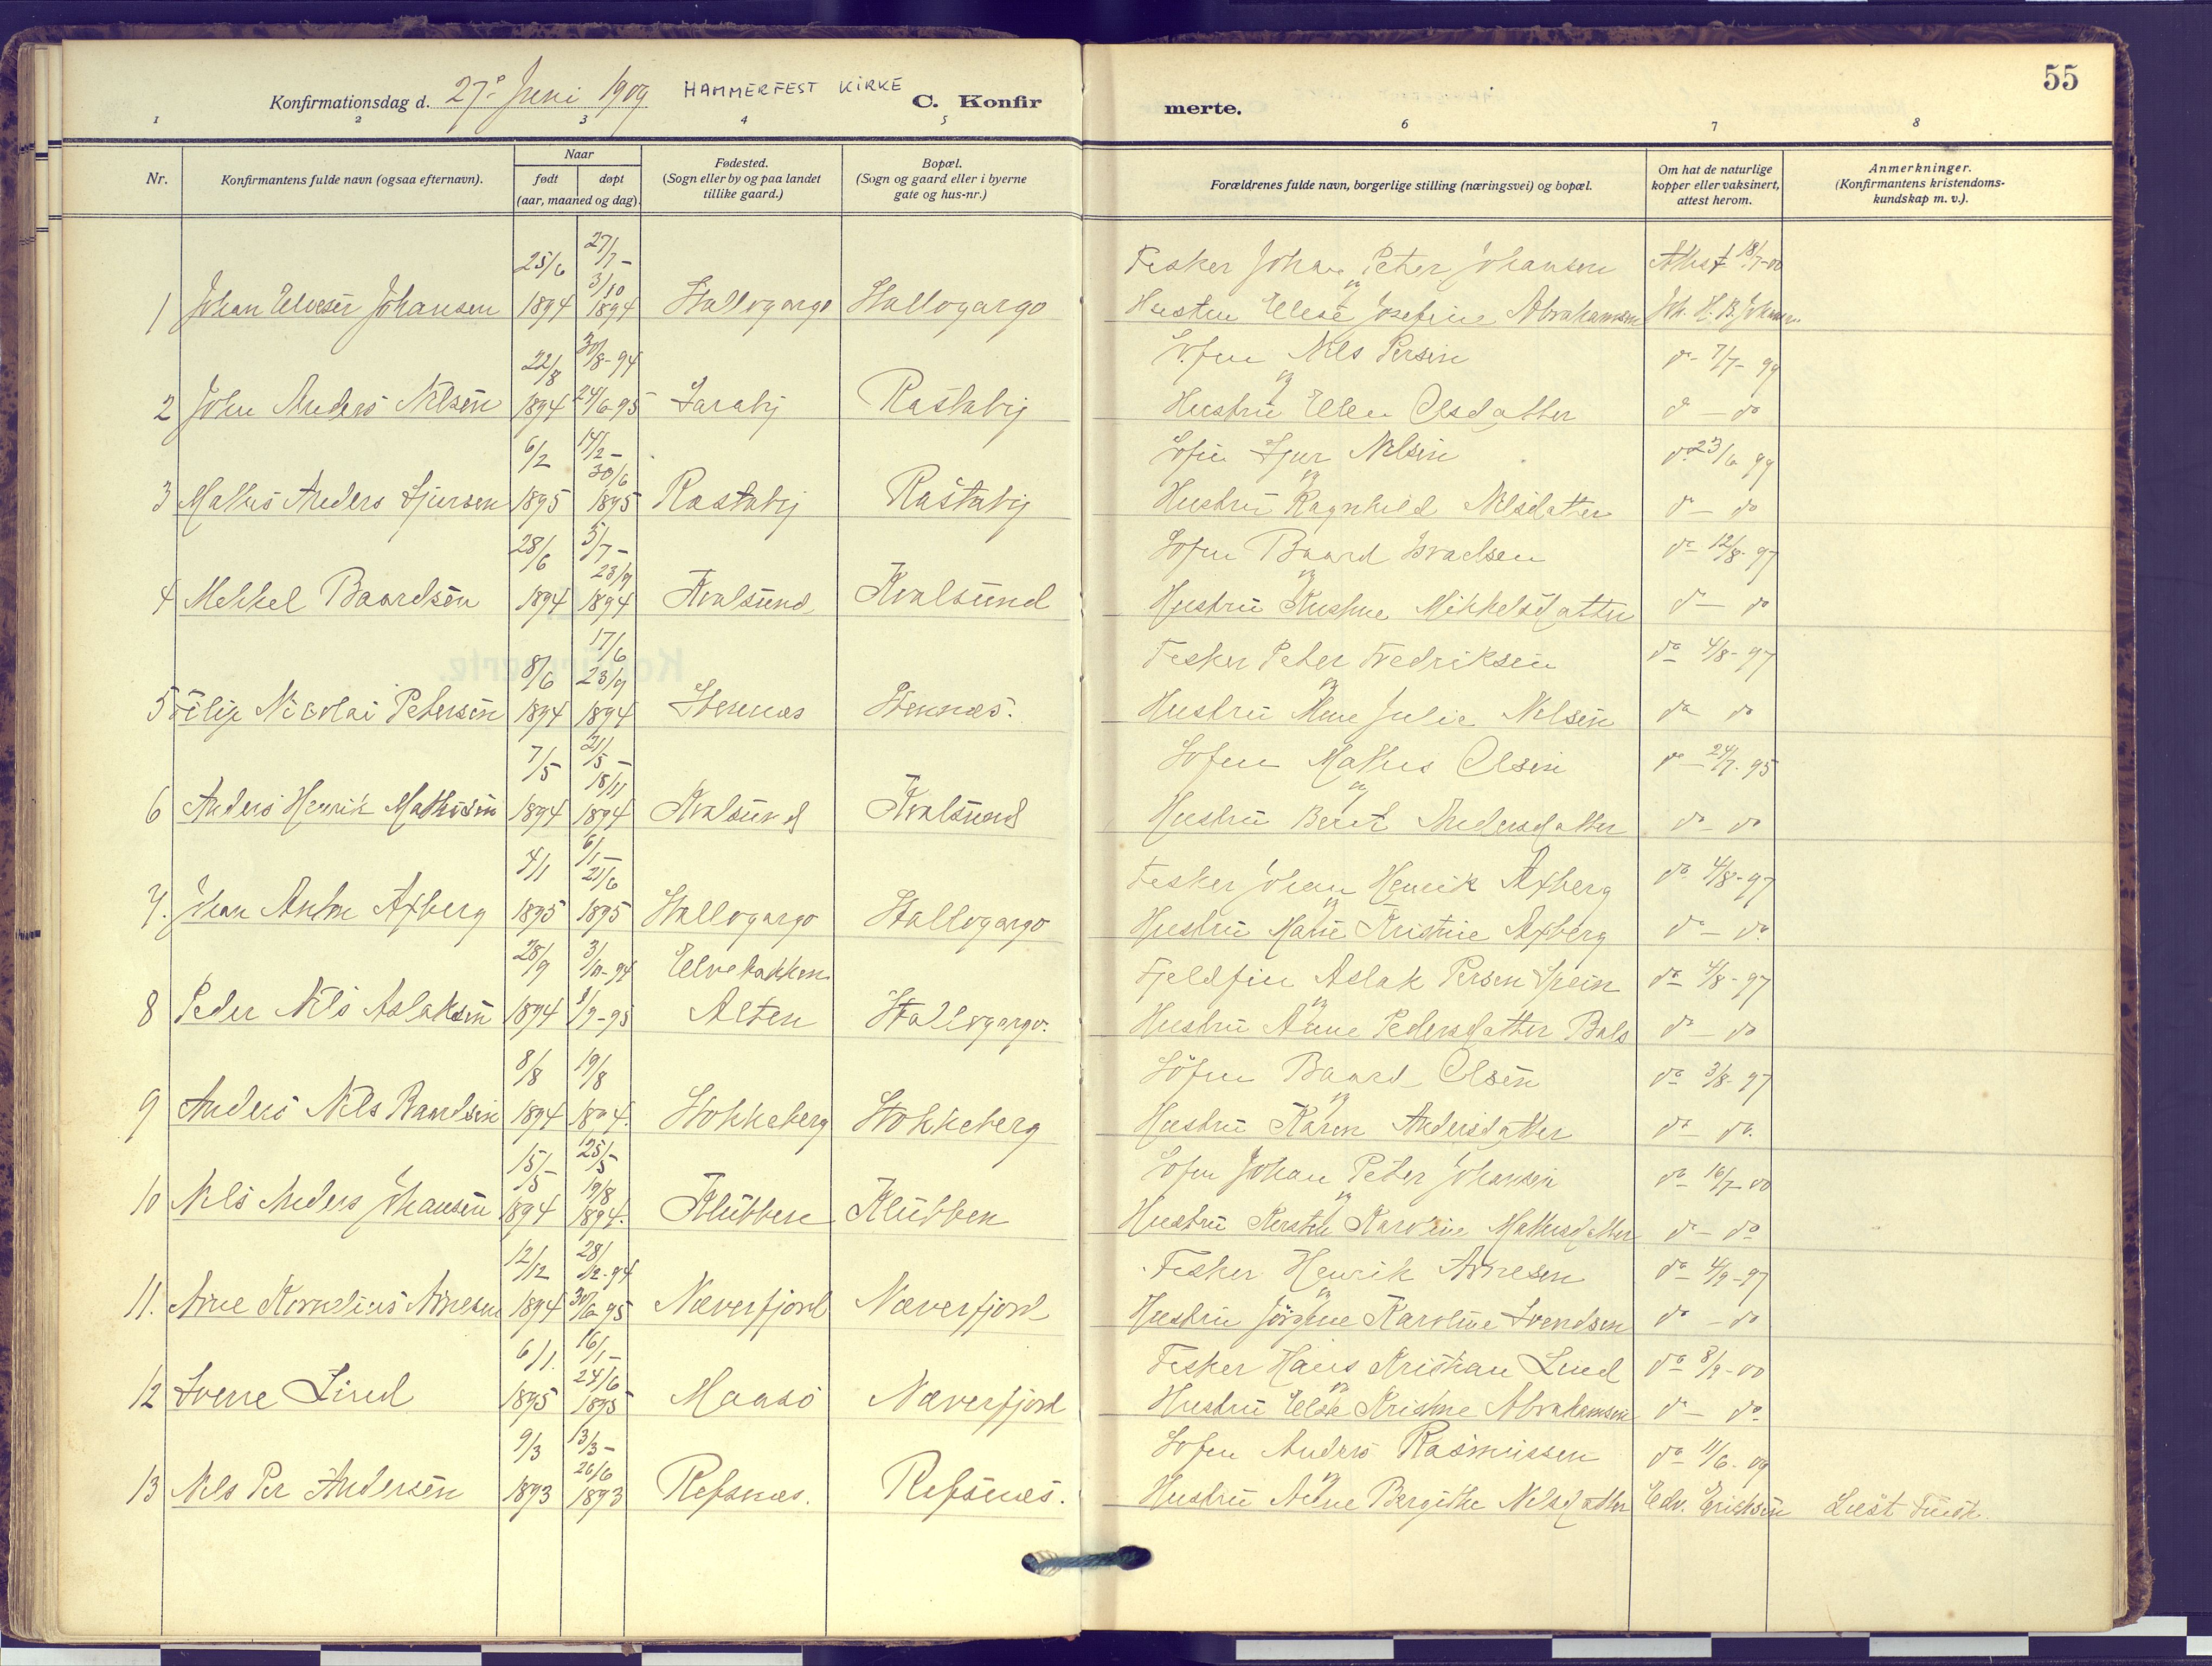 55
Konfirmationsdag d. 27de Juni 1909 HAMMERFEST KIRKE C. Konfirmerte.
1 2 3 4 5 6 7 8
Nr.
Konfirmantens fulde navn (ogsaa efternavn).
Naar
født døpt
(aar, maaned og dag).
Fødested.
(Sogn eller by og paa landet
tillike gaard.)
Bopæl.
(Sogn og gaard eller i byerne
gate og hus-nr.)
Forældrenes fulde navn, borgerlige stilling (næringsvei) og bopæl.
Om hat de naturlige
kopper eller vaksinert,
attest herom.
Anmerkninger.
(Konfirmantens kristendoms-
kundskap m. v.).
25/6 27/7 - 3/10 Fisker Johan Peter Johansen Attest 18/7-00
1 Johan Johansen 1894 1894 Stallogargo Stallogargo og Hustru Elese Josefine Abrahamsen
22/8 30/8-94 Søfin Nils Persen do 7/7-99
2 John Anders Nilsen 1894 24/6-95 Saraby Rastaby og Hustru Ellen Olsdatter do - do
6/2 14/2 - 30/6 Søfin Sjur Nilsen do 23/6 99
3 Mathis Anders Sjursen 1895 1895 Rastaby Rastaby og Hustru Ragnhild Nilsdatter do - do
28/6 5/7 - 23/9 Søfin Baard Israelsen do 12/8-97
4 Mekkel Baardsen 1894 1894 Kvalsund Kvalsund og Hustru Kristine Mikkelsdatter do - do
8/6 17/6 23/9 Fisker Peter Fredriksen do 4/8-97
5 Filip Nicolai Petersen 1894 1894 Stennæs Stennæs. og Hustru Anne Julie Nilsen do do
7/5 21/5 - 18/11 Søfin Mathis Olsen do - 24/7-95
6 Anders Henrik Mathisen 1894 1894 Kvalsund Kvalsund og Hustru Berit Andersdatter do - do
4/1 6/1 - 21/6 Fisker Johan Henrik Axberg do 4/8-97
7. Johan Anton Axberg 1895 1895 Stallogargo Stallogargo og Hustru Marie Kristine Axberg do - do.
28/9 3/10-94 Elvebakken Fjeldfin Aslak Persen Spein do 4/8-97
8 Peder Nils Aslaksen 1894 1/9-95 Alten Stallogargo. og Hustru Anne Pedersdatter Bals do - do
8/8 19/8 Søfin Baard Olsen do 3/8-97
9 Anders Nils Baardsen 1894 1894. Stokkeberg Stokkeberg og Hustru Karen Andersdatter do do.
15/5 25/5 - 19/8 Søfin Johan Peter Johansen do 16/7-00
10 Nils Anders Johansen 1894 1894. Klubben Klubben og Hustru Karoline Mathisdatter do - do
12/12 28/12-94 Fisker Henrik Arnesen do 4/9-97
11. Arne Kornelius Arnesen 1894 30/6-95 Næverfjord Næverfjord og Hustru Jørgine Karoline Svendsen do - do
6/1. 16/1 - 24/6 Fisker Hans Kristian Lund do 8/9-00
12 Sverre Lund 1895 1895 Maasø Næverfjord og Hustru Else Kristine Abrahamsen do - do.
9/3 13/3 - 26/6 Søfin Anders Rasmussen do 11/6-09
13 Nils Per Andersen 1893 1893 Refsnæs. Refsnæs. og Hustru Anne Bergithe Nilsdatter Edv. Eriksen Læst Finsk.